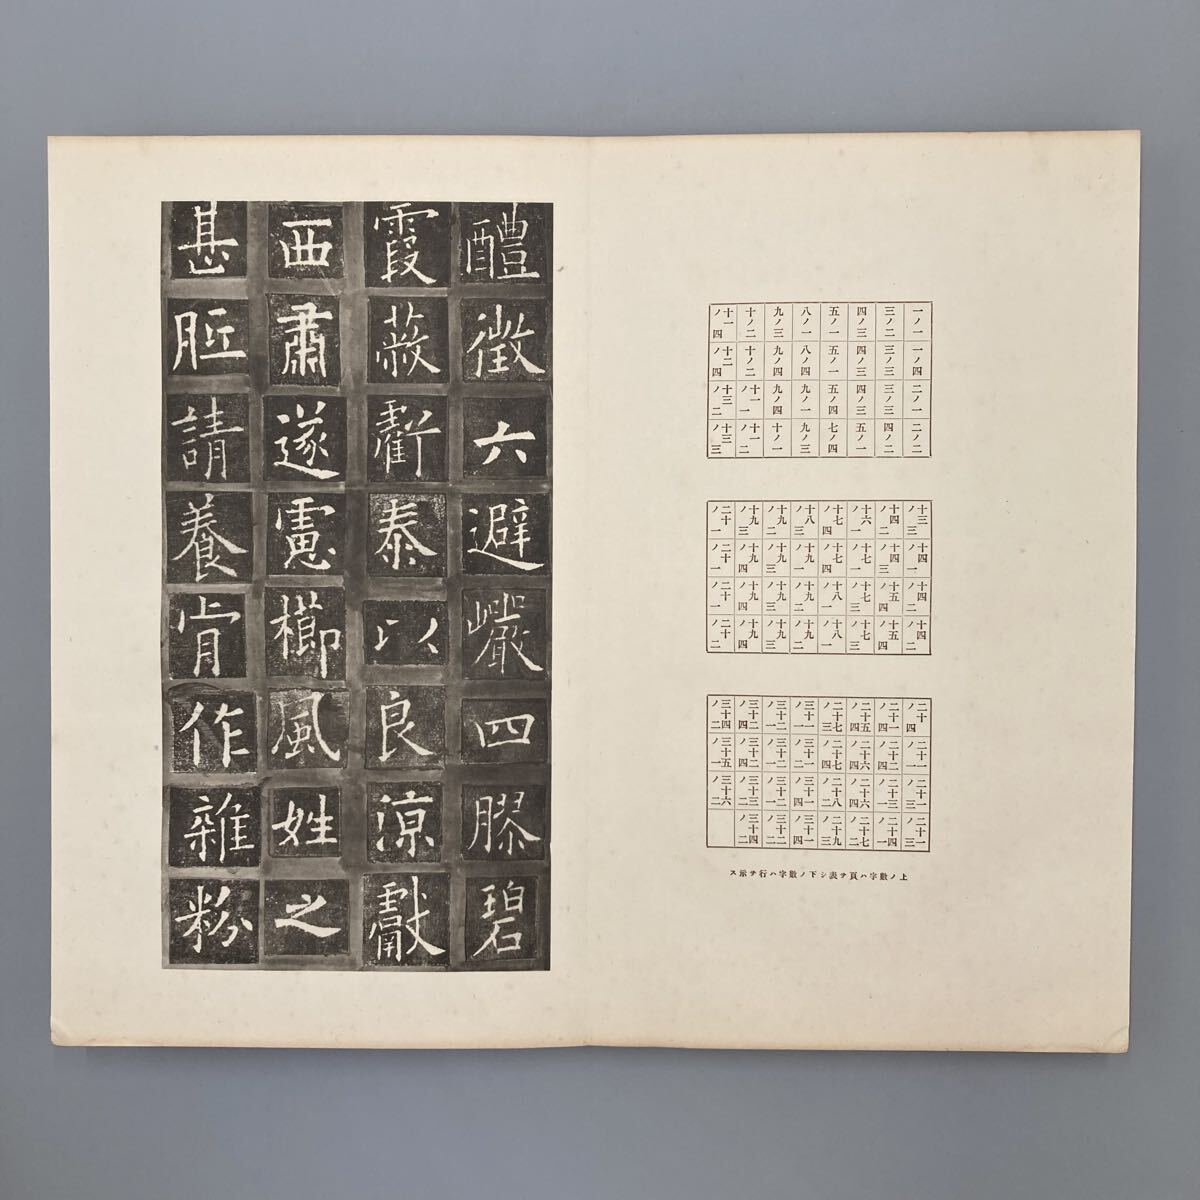 一ノ一 一ノ四 二ノ一 二ノ二
三ノ二 三ノ三 三ノ三 四ノ二
四ノ三 四ノ三 四ノ三 五ノ一
五ノ一 五ノ一 五ノ四 七ノ四
八ノ一 八ノ四 九ノ一 九ノ三
九ノ三 九ノ四 九ノ四 十ノ一
十ノ二 十ノ二 十一ノ一 十一ノ二
十一ノ四 十二ノ四 十三ノ二 十三ノ三
十三ノ三 十四ノ一 十四ノ二 十四ノ二
十四ノ二 十四ノ三 十五ノ四 十五ノ四
十六ノ一 十七ノ一 十七ノ三 十七ノ三
十七ノ四 十七ノ四 十八ノ一 十八ノ一
十八ノ三 十九ノ一 十九ノ二 十九ノ二
十九ノ二 十九ノ三 十九ノ三 十九ノ三
十九ノ三 十九ノ四 十九ノ四 十九ノ四
二十ノ一 二十ノ一 二十ノ一 二十ノ二
二十ノ四 二十一ノ一 二十一ノ三 二十一ノ三
二十一ノ四 二十二ノ四 二十三ノ一 二十四ノ一
二十五ノ四 二十六ノ四 二十六ノ四 二十七ノ二
二十七ノ三 二十七ノ四 二十八ノ二 二十九ノ二
三十一ノ一 三十一ノ二 三十一ノ四 三十一ノ四
三十二ノ一 三十二ノ一 三十二ノ一 三十二ノ二
三十二ノ四 三十二ノ四 三十三ノ二 三十四ノ二
三十四ノ二 三十五ノ一 三十六ノ二
上ノ數字ハ頁ヲ表シ下ノ數字ハ行ヲ示ス
醴徵六避巖四膠碧
霞蔽虧泰以良涼獻
西肅遂慮櫛風姓之
甚胝請養肯作雜粉